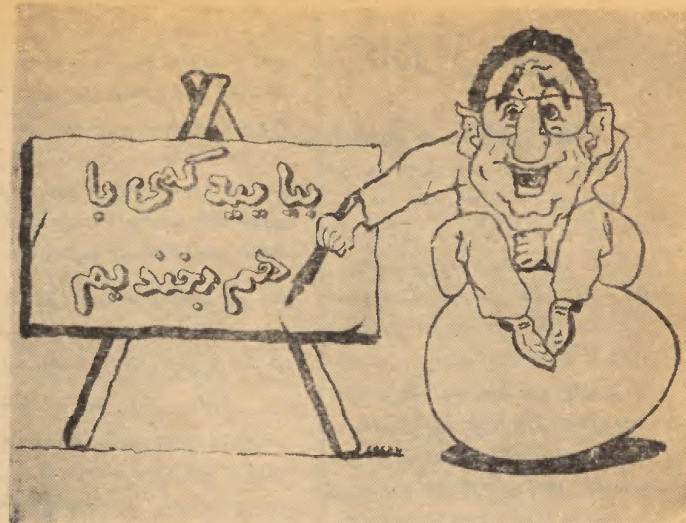 بیا یید کمی با
هم بخندیم